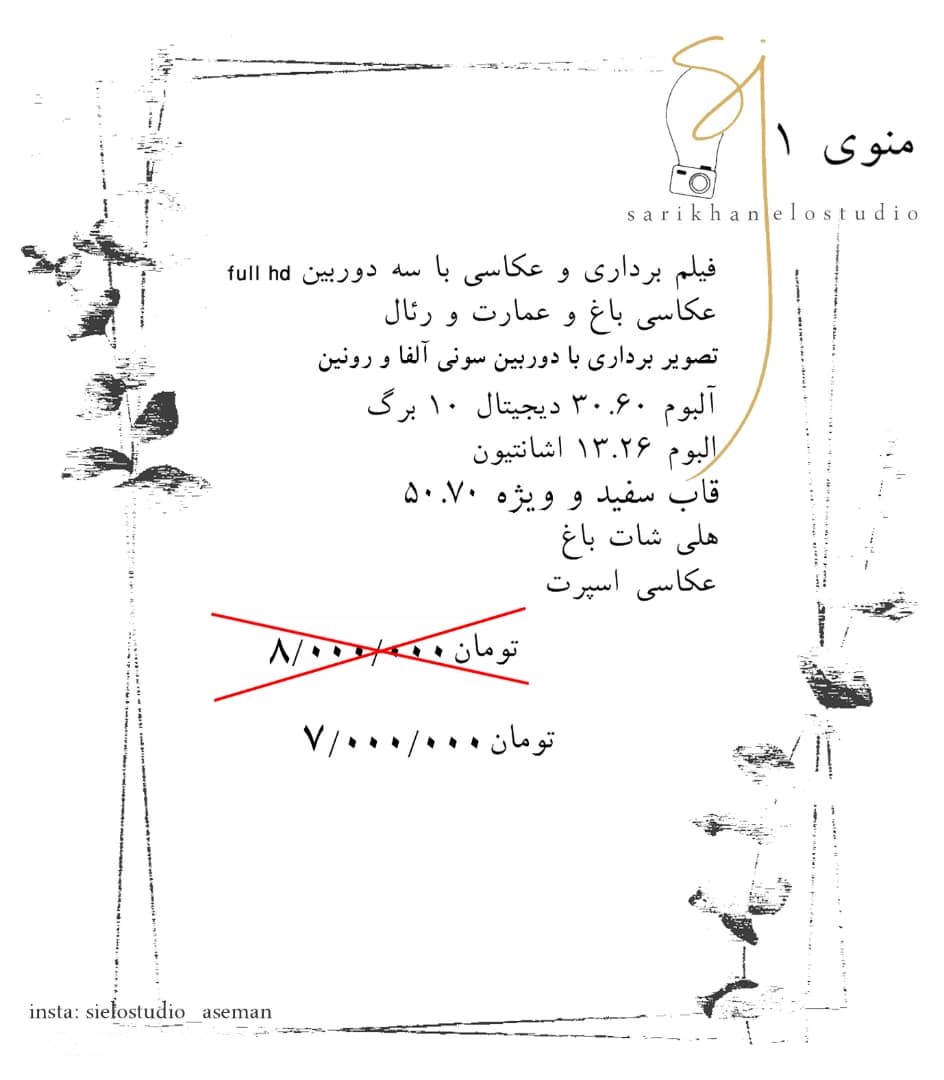 منوی ۱
sarikhan elostudio
فیلم برداری و عکاسی با سه دوربین full hd
عکاسی باغ و عمارت و رئال
تصویر برداری با دوربین سونی آلفا و رونین
آلبوم ۳۰.۶۰ دیجیتال ۱۰ برگ
البوم ۱۳.۲۶ اشانتیون
قاب سفید و ویژه ۵۰.۷۰
هلی شات باغ
عکاسی اسپرت
۸/۰۰۰/۰۰۰ تومان
۷/۰۰۰/۰۰۰ تومان
insta: sielostudio_aseman